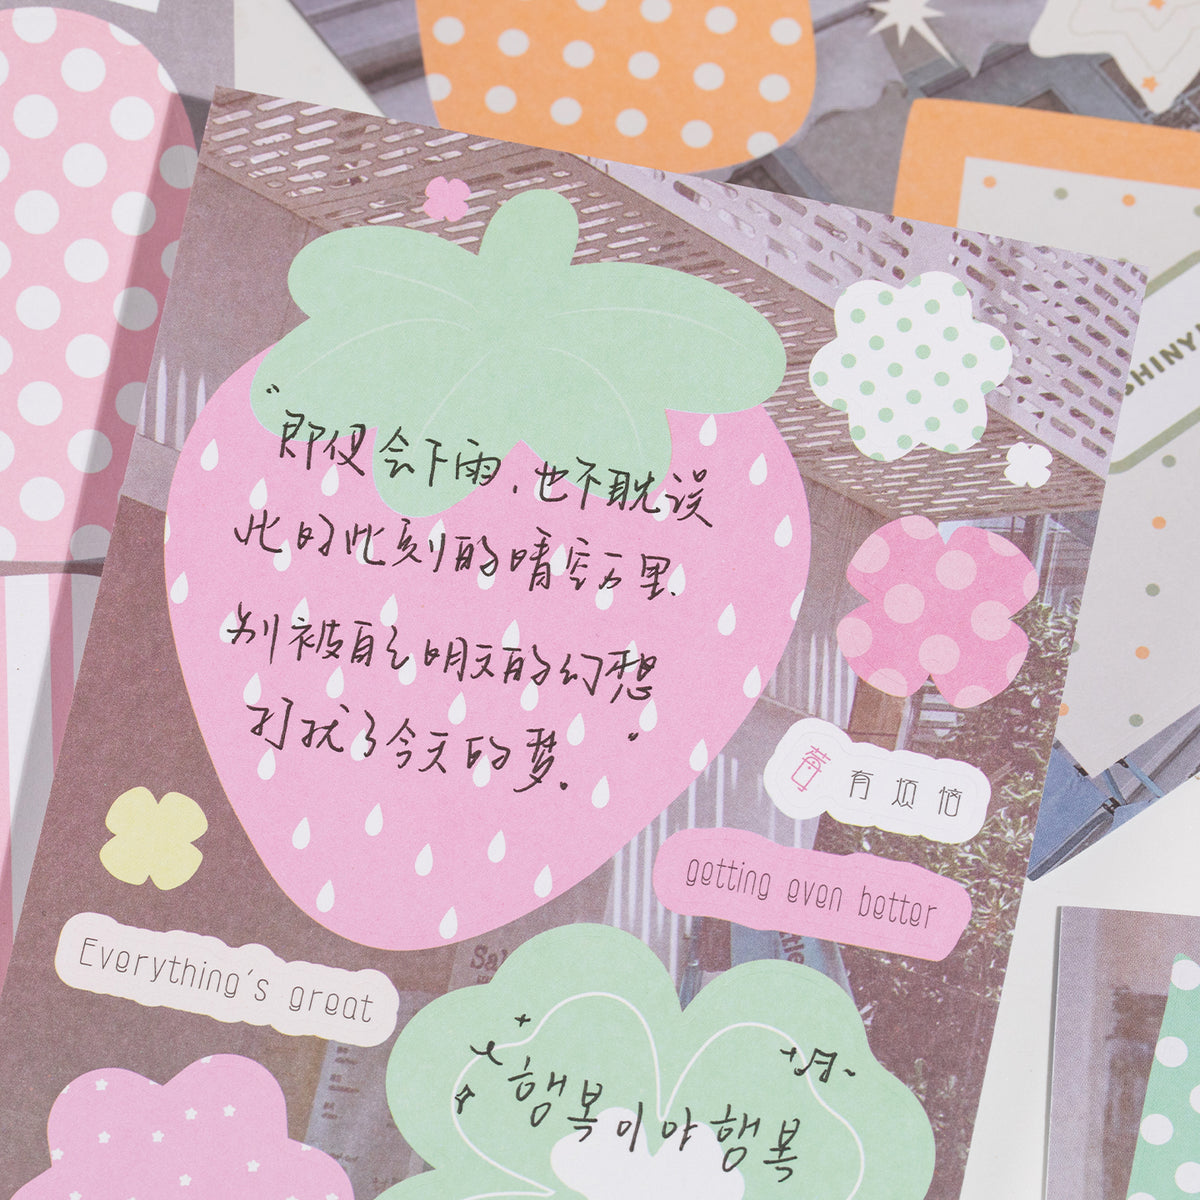 "即使会下雨，也不耽误
此时此刻的晴空万里.
别被自己明天的幻想
打扰了今天的梦."
莓有烦恼
getting even better
Everything's great
행복이야행복
SHINY